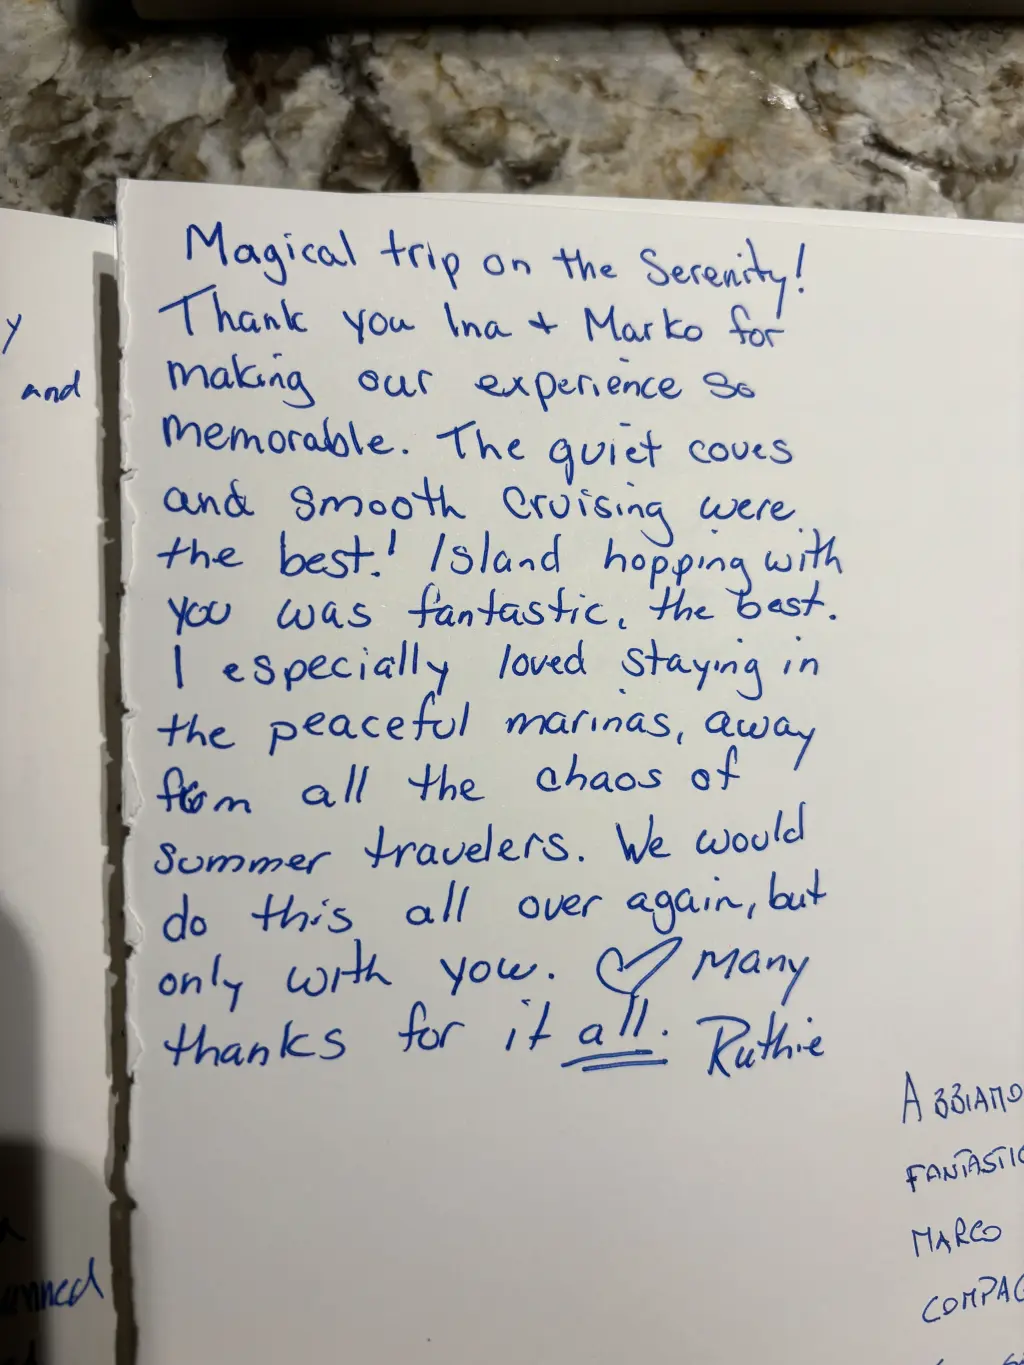 Magical trip on the Serenity!
Thank you Ina + Marko for
making our experience so
memorable. The quiet coves
and smooth cruising were
the best! Island hopping with
you was fantastic, the best.
I especially loved staying in
the peaceful marinas, away
from all the chaos of
summer travelers. We would
do this all over again, but
only with you. ♡ Many
thanks for it all. Ruthie
y
and
ABBIAMO
FANTASTIC
MARCO
COMPAG